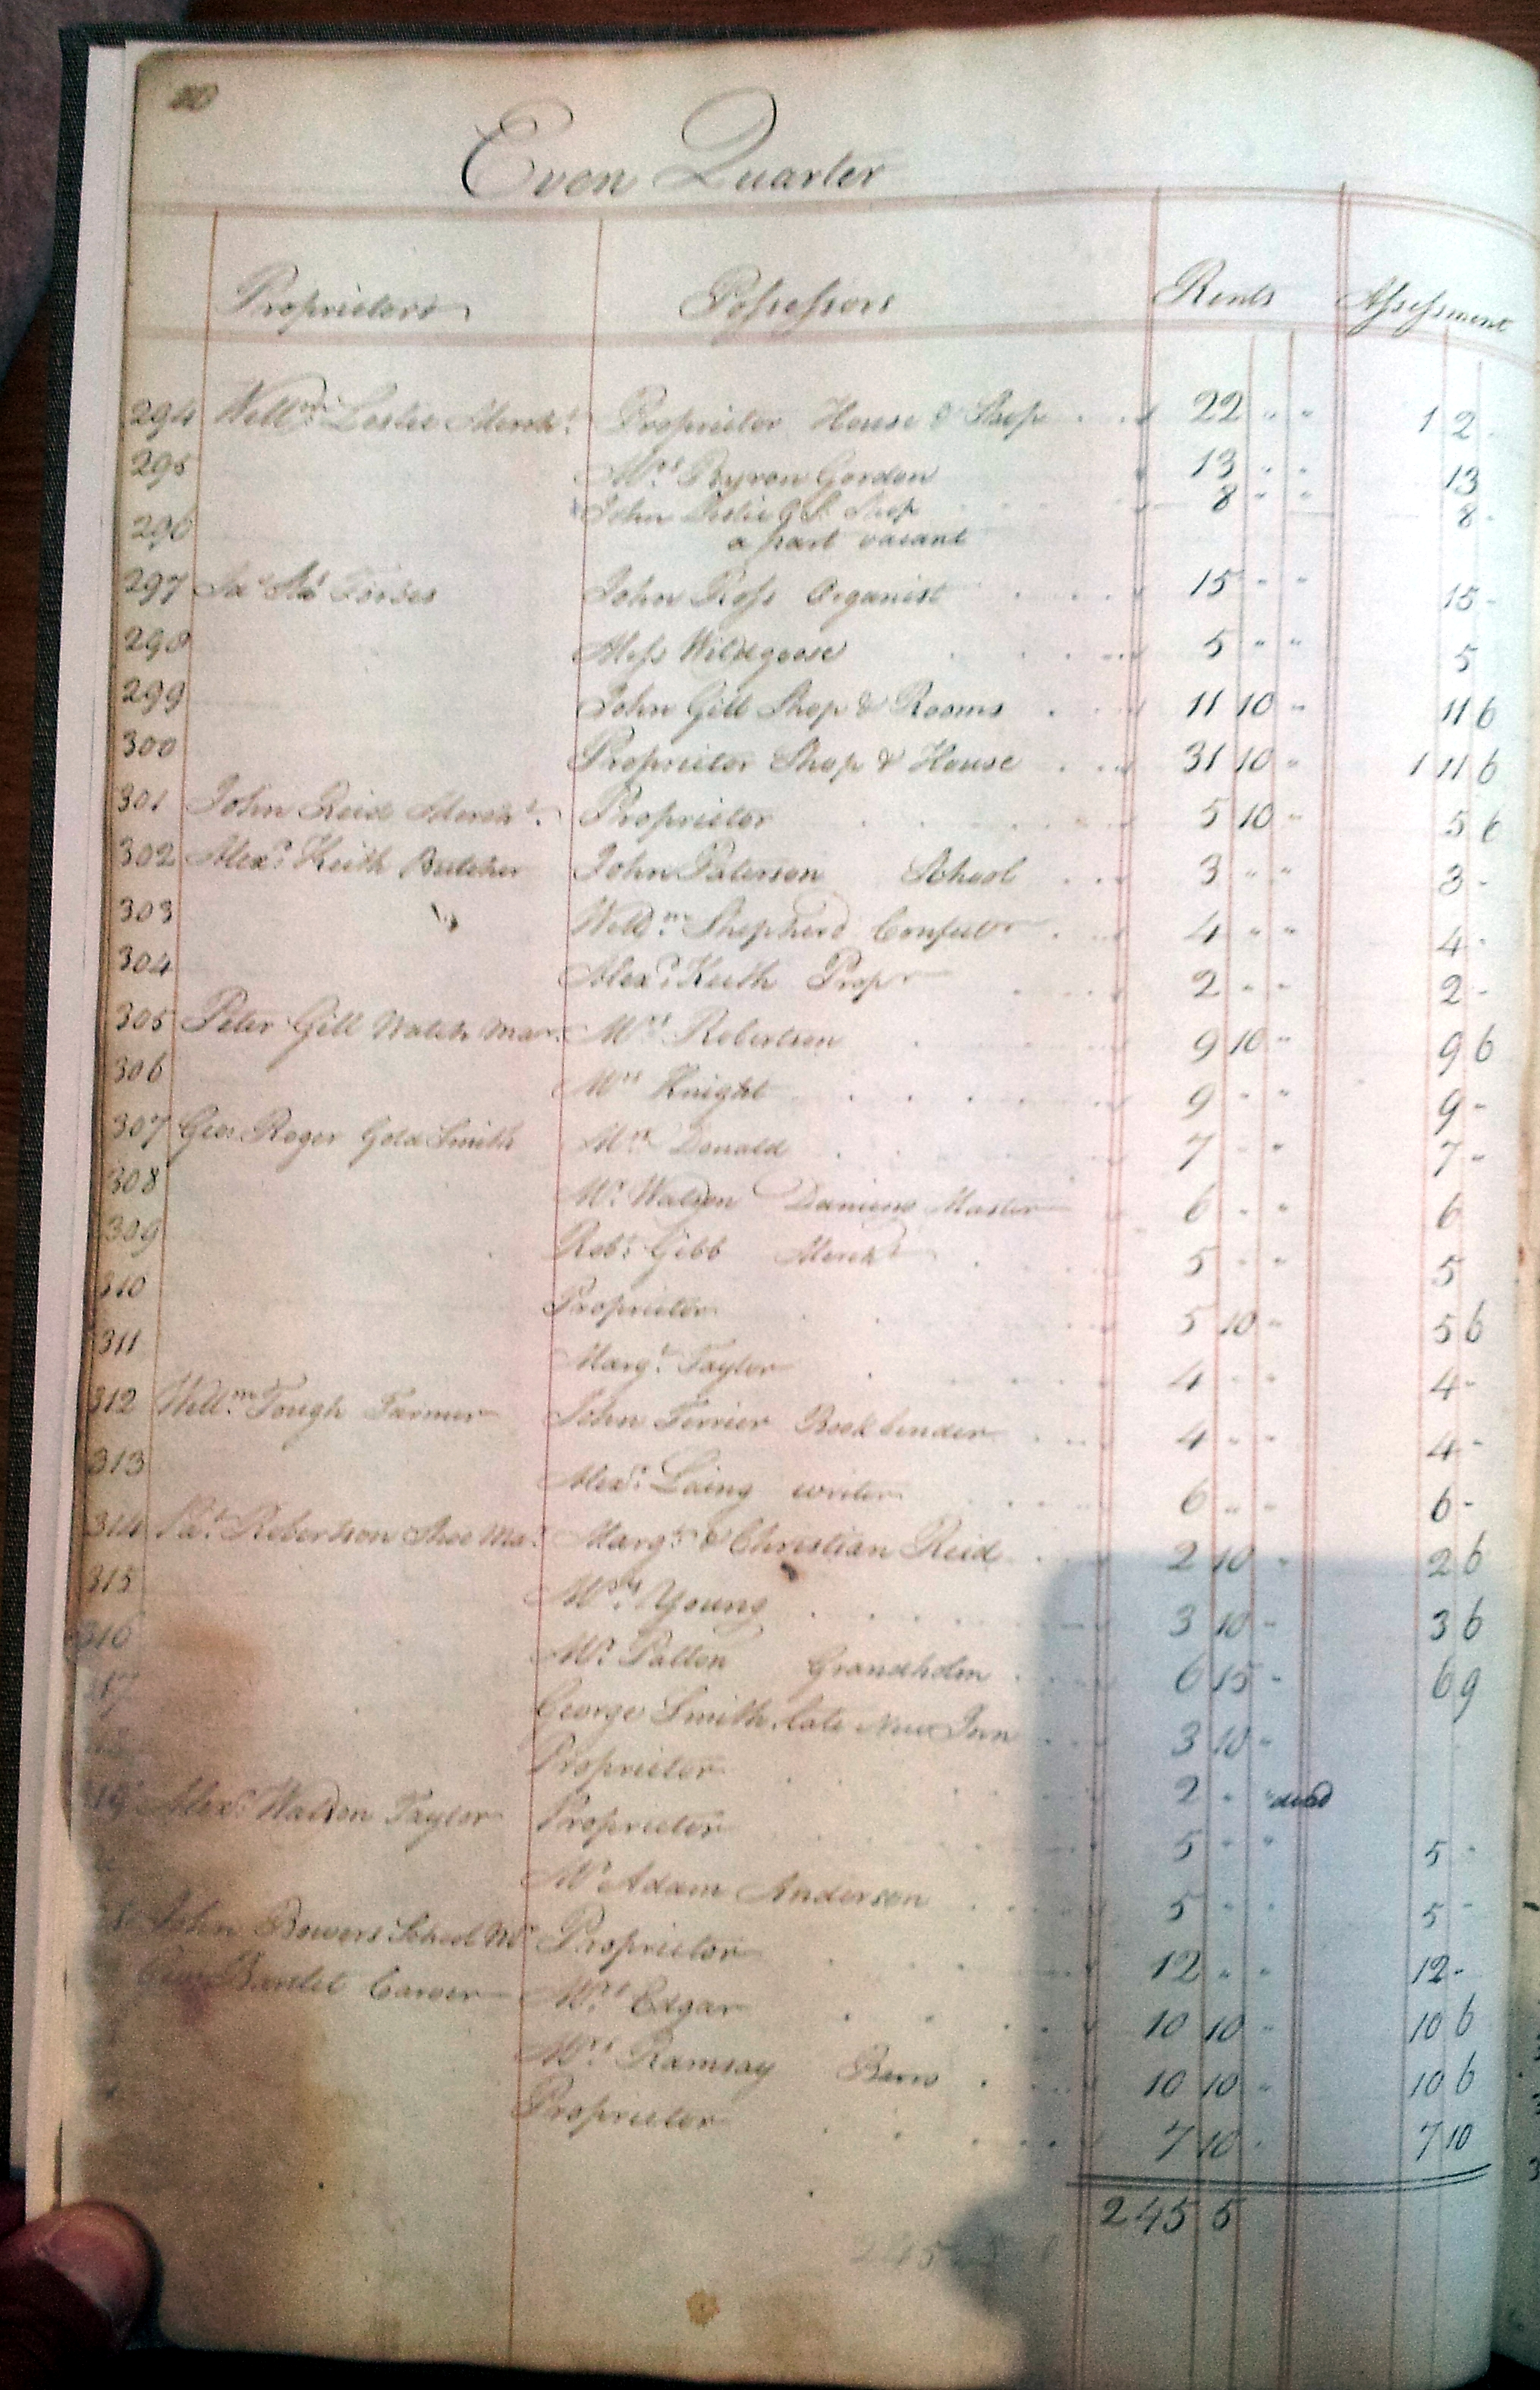 Even Quarter
Proprietors Possessors Rents Assessment
294 Willm. Leslie Mercht. Proprietor House & Shop 22 " " 1 2 -
295 Mrs. Byron Gordon 13 " " 13
John Leslie Shop 8 " " 8 -
296 a part vacant
297 Forbes John Ross Organist 15 " " 15 -
298 Miss Wildgoose 5 " " 5
299 John Gill Shop & Rooms 11 10 " 11 6
300 Proprietor Shop & House 31 10 " 1 11 6
301 John Reid Mercht. Proprietor 5 10 " 5 6
302 Alexr. Keith Butcher John Paterson School 3 " " 3 -
303 Willm. Shepherd Confectr 4 " " 4 -
304 Alexr. Keith Propr 2 " " 2 -
305 Peter Gill Watch Mar. Mrs. Robertson 9 10 " 9 6
306 Mrs Knight 9 " " 9 -
307 Geo: Roger Gold Smith Mrs Donald 7 " " 7 -
308 Mr. Watson Dancing Master 6 " " 6
309 Robt. Gibb Mercht 5 " " 5
310 Proprietor 5 10 " 5 6
311 Margt. Taylor 4 " " 4 -
312 Willm. Tough Farmer John Ferrier Bookbinder 4 " " 4 -
313 Alexr. Laing writer 6 " " 6 -
314 Pat. Robertson Shoe Mar. Margt. & Christian Reid 2 10 " 2 6
315 Mrs. Young 3 10 - 3 6
316 Mr. Patton Grandholm 6 15 - 6 9
317 George Smith late New Inn 3 10 -
Proprietor 2 " " dead
319 Alexr. Watson Taylor Proprietor 5 " " 5 -
Mr Adam Anderson 5 " " 5 -
John Bowers School Mr Proprietor 12 " " 12 -
Geo: Bartlet Carver Mrs. Edgar 10 10 - 10 6
Mrs. Ramsay Barro 10 10 - 10 6
Proprietor 7 10 - 7 10
245 5